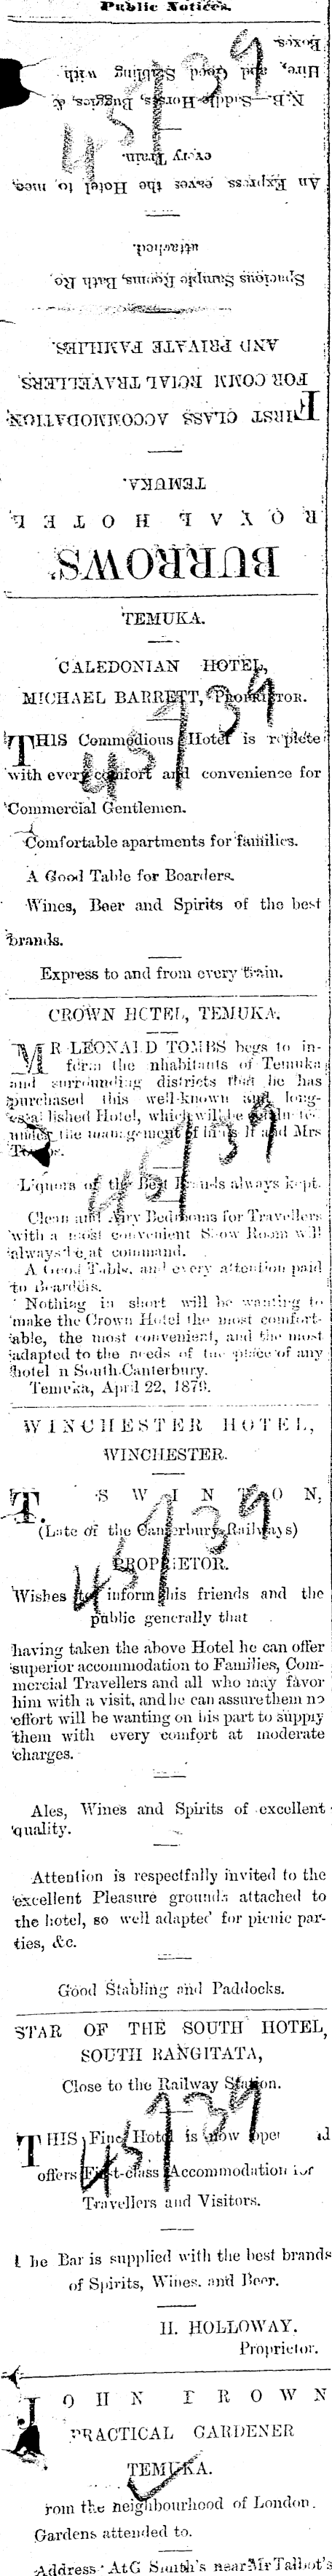 Public Notices.
BURROWS'
ROYAL HOTEL,
TEMUKA.
FIRST CLASS ACCOMMODATION,
FOR COMM RCIAL TRAVELLERS,
AND PRIVATE FAMILIES.
Spacious Sample Rooms, Bath Ro
attached.
An Express eaves the Hotel to mee,
every Train.
N.B.—Saddle Horses, Buggies, &
Hire, and Good Stabling with
Boxes.
TEMUKA.
CALEDONIAN HOTEL,
MICHAEL BARRETT, PROPRIETOR.
THIS Commodious Hotel is replete
with every comfort and convenience for
Commercial Gentlemen.
Comfortable apartments for families.
A Good Table for Boarders.
Wines, Beer and Spirits of the best
brands.
Express to and from every train.
CROWN HOTEL, TEMUKA.
MR LEONALD TOMBS begs to in-
form the nhabitants of Temuka
and surrounding districts that he has
purchased this well-known and long-
esta lished Hotel, which will be
under the management of hims lf and Mrs
Liquors of the Best Brands always kept.
Clean and Airy Bedrooms for Travellers
with a most convenient Show Room will
always be at command.
A Good Table, and every attention paid
to Boarders.
Nothing in short will be wanting to
make the Crown Hotel the most comfort-
able, the most convenient, and the most
adapted to the needs of the place of any
hotel n South Canterbury.
Temuka, April 22, 1879.
WINCHESTER HOTEL,
WINCHESTER.
T. SWINTON,
(Late of the Canterbury Railways)
PROPRIETOR.
Wishes to inform his friends and the
public generally that
having taken the above Hotel he can offer
superior accommodation to Families, Com-
mercial Travellers and all who may favor
him with a visit, and he can assure them no
effort will be wanting on his part to supply
them with every comfort at moderate
charges.
Ales, Wines and Spirits of excellent
quality.
Attention is respectfully invited to the
excellent Pleasure grounds attached to
the hotel, so well adapted for picnic par-
ties, &c.
Good Stabling and Paddocks.
STAR OF THE SOUTH HOTEL,
SOUTH RANGITATA,
Close to the Railway Station.
THIS Fine Hotel is now open d
offers First-class Accommodation for
Travellers and Visitors.
The Bar is supplied with the best brands
of Spirits, Wines, and Beer.
H. HOLLOWAY.
Proprietor.
JOHN BROWN
PRACTICAL GARDENER
TEMUKA.
rom the neighbourhood of London.
Gardens attended to.
Address At G Smith's near Mr Talbot's